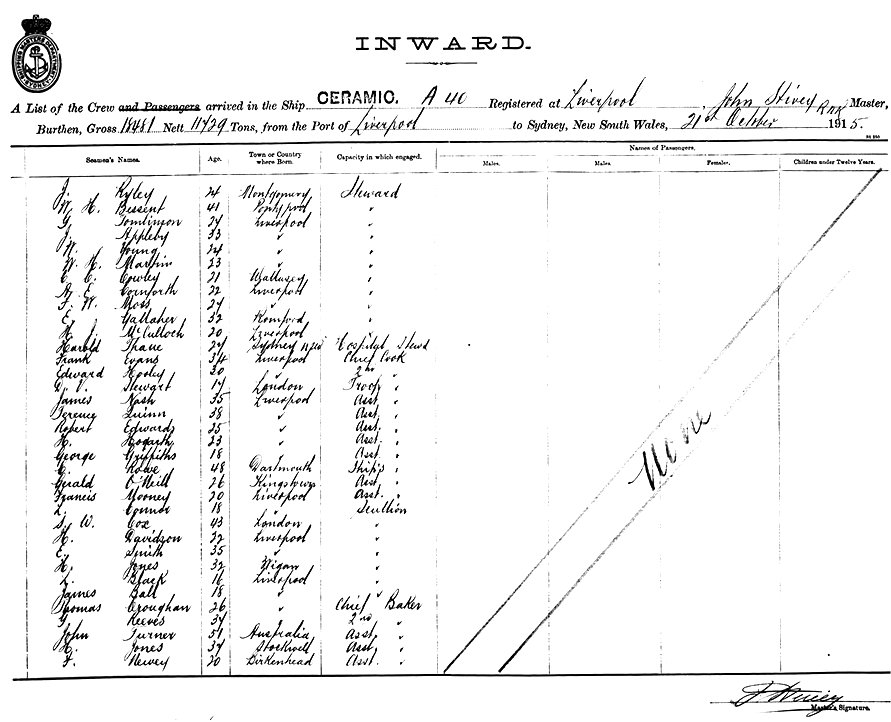 SHIPPING MASTERS DEPARTMENT SYDNEY
INWARD.
A List of the Crew and Passengers arrived in the Ship CERAMIC. A 40 Registered at Liverpool, John Stivey RNR Master,
Burthen, Gross 18481 Nett 11729 Tons, from the Port of Liverpool to Sydney, New South Wales, 21st October 1915.
Names of Passengers.
Seamen's Names. Age. Town or Country where Born. Capacity in which engaged. Males. Males. Females. Children under Twelve Years.
J. Ryley 24 Montgomery Steward
W. H. Bessent 41 Pontypool "
G. Tomlinson 24 Liverpool "
J. Appleby 33 " "
W. Young 24 " "
W. H. Martin 23 " "
C. C. Cowley 21 Wallasey "
A. E. Cornforth 22 Liverpool "
F. W. Moss 24 " "
E. Gallaher 32 Romford "
H. J. McCulloch 20 Liverpool "
Harold Thane 24 Sydney NSW Hospital Stewd
Frank Evans 34 Liverpool Chief Cook
Edward Hooley 30 " 2nd "
D. V. Stewart 19 London Troop "
James Nash 35 Liverpool Asst. "
Terence Quinn 38 " Asst. "
Robert Edwards 25 " Asst. "
H. Hogarth 23 " Asst. "
George Griffiths 18 " Asst. "
C. Rowe 48 Dartmouth Ship's "
Gerald O'Neill 26 Kingstown Asst. "
Francis Mooney 20 Liverpool Asst. "
L. Connor 18 " Scullion
S. W. Cox 43 London "
H. Davidson 22 Liverpool "
E. Smith 35 " "
H. Jones 32 Wigan "
L. Black 16 Liverpool "
James Ball 18 " "
Thomas Croughan 26 " Chief Baker
G. Reeves 34 " 2nd "
John Turner 51 Australia Asst. "
H. Jones 34 Stockwell Asst. "
F. Newey 20 Birkenhead Asst. "
None
Master's Signature.